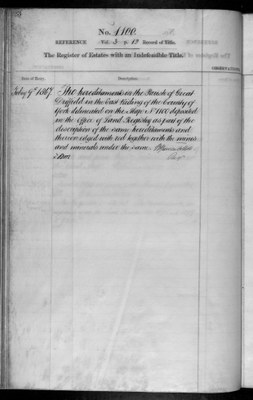 No. 1100.
REFERENCE Vol. 3 Record of Title.
The Register of Estates with an Indefeasible Title.
Date of Entry. Description.
July 9th 1867. The hereditaments in the Parish of Great
Driffield in the East Riding of the County of
York delineated on the Map No 1100 deposited
in the Office of Land Registry as part of the
description of the same hereditaments and
thereon edged with red together with the mines
and minerals under the same.